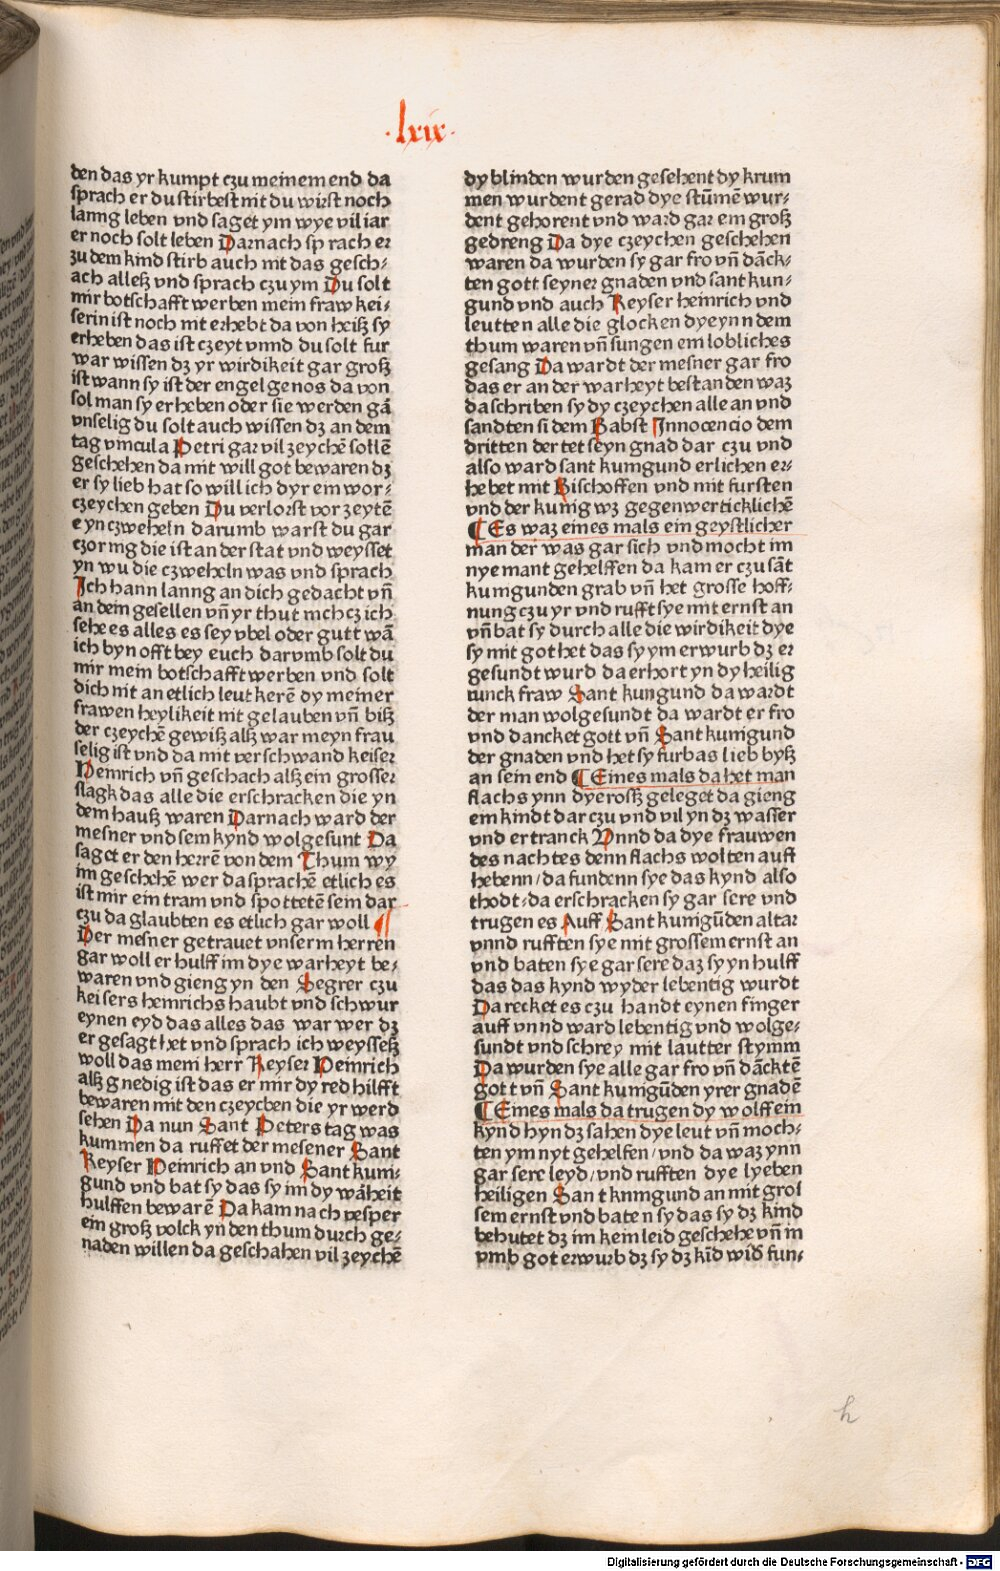 ·lxix·
den das yr kumpt czu meinem end da
sprach er du stirbest nit du wirst noch
lanng leben vnd saget ym wye vil iar
er noch solt leben Darnach sprach er
zu dem kind stirb auch nit das gesch⸗
ach alleß vnd sprach czu ym Du solt
mir botschafft werben mein fraw kei⸗
serin ist noch nit erhebt da von heiß sy
erheben das ist czeyt vnnd du solt fur
war wissen dz yr wirdikeit gar groß
ist wann sy ist der engel genos da von
sol man sy erheben oder sie werden gā
vnselig du solt auch wissen dz an dem
tag vincula Petri gar vil zeychē sollē
geschehen da mit will got bewaren dz
er sy lieb hat so will ich dyr ein wor⸗
czeychen geben Du verlorst vor zeytē
eyn czweheln darumb warst du gar
czornig die ist an der stat vnd weysset
yn wu die czweheln was vnd sprach
Ich hann lanng an dich gedacht vn̄
an dein gesellen vn̄ yr thut nichcz ich
sehe es alles es sey vbel oder gutt wā
ich byn offt bey euch darvmb solt du
mir mein botschafft werben vnd solt
dich nit an etlich leut kerē dy meiner
frawen heylikeit nit gelauben vn̄ biß
der czeychē gewiß alß war meyn frau
selig ist vnd da mit verschwand keiser
Heinrich vn̄ geschach alß ein grosser
slagk das alle die erschracken die yn
dem hauß waren Darnach ward der
mesner vnd sein kynd wolgesunt Da
saget er den herrē von dem Thum wy
im geschehē wer da sprachē etlich es
ist mir ein tram vnd spottetē sein dar
czu da glaubten es etlich gar woll ¶
Der mesner getrauet vnserm herren
gar woll er hulff im dye warheyt be⸗
waren vnd gieng yn den Segrer czu
keisers heinrichs haubt vnd schwur
eynen eyd das alles das war wer dz
er gesagt het vnd sprach ich weysseß
woll das mein herr Keyser Heinrich
alß gnedig ist das er mir dy red hilfft
bewaren mit den czeychen die yr werd
sehen Da nun Sant Peters tag was
kummen da ruffet der mesener Sant
Keyser Heinrich an vnd Sant kuni⸗
gund vnd bat sy das sy im dy wāheit
hulffen bewarē Da kam nach vesper
ein groß volck yn den thum durch ge⸗
naden willen da geschahen vil zeychē
dy blinden wurden gesehent dy krum
men wurdent gerad dye stūmē wur⸗
dent gehorent vnd ward gar ein groß
gedreng Da dye czeychen geschehen
waren da wurden sy gar fro vn̄ dāck⸗
ten gott seyner gnaden vnd sant kun⸗
gund vnd auch Keyser heinrich vnd
leutten alle die glocken dye ynn dem
thum waren vn̄ sungen ein lobliches
gesang Da wardt der mesner gar fro
das er an der warheyt bestanden waz
da schriben sy dy czeychen alle an vnd
sandten si dem Babst Innocencio dem
dritten der tet seyn gnad dar czu vnd
also ward sant kunigund erlichen er⸗
hebet mit Bischoffen vnd mit fursten
vnd der kunig wz gegenwerticklichē
¶ Es waz eines mals ein geystlicher
man der was gar sich vnd mocht im
nyemant gehelffen da kam er czu sāt
kunigunden grab vn̄ het grosse hoff⸗
nung czu yr vnd rufft sye mit ernst an
vn̄ bat sy durch alle die wirdikeit dye
sy mit got het das sy ym erwurb dz er
gesundt wurd da erhort yn dy heilig
iunck fraw Sant kungund da wardt
der man wolgesundt da wardt er fro
vnd dancket gott vn̄ Sant kunigund
der gnaden vnd het sy furbas lieb byß
an sein end ¶ Eines mals da het man
flachs ynn dye rosß geleget da gieng
ein kindt dar czu vnd vil yn dz wasser
vnd ertranck Vnnd da dye frauwen
des nachtes denn flachs wolten auff
hebenn / da fundenn sye das kynd also
thodt / da erschracken sy gar sere vnd
trugen es Auff Sant kunigūden altar
vnnd rufften sye mit grossem ernst an
vnd baten sye gar sere daz sy yn hulff
das das kynd wyder lebentig wurdt
Da recket es czu handt eynen finger
auff vnnd ward lebentig vnd wolge⸗
sundt vnd schrey mit lautter stymm
Da wurden sye alle gar fro vn̄ dācktē
gott vn̄ Sant kunigūden yrer gnadē
¶ Eines mals da trugen dy wolff ein
kynd hyn dz sahen dye leut vn̄ moch⸗
ten ym nyt gehelfen / vnd da waz ynn
gar sere leyd / vnd rufften dye lyeben
heiligen Sant knnigund an mit gros
sem ernst vnd baten sy das sy dz kind
behutet dz im kein leid geschehe vn̄ in
vmb got erwurb dz sy dz kīd wid' fun⸗
h
Digitalisierung gefördert durch die Deutsche Forschungsgemeinschaft - DFG